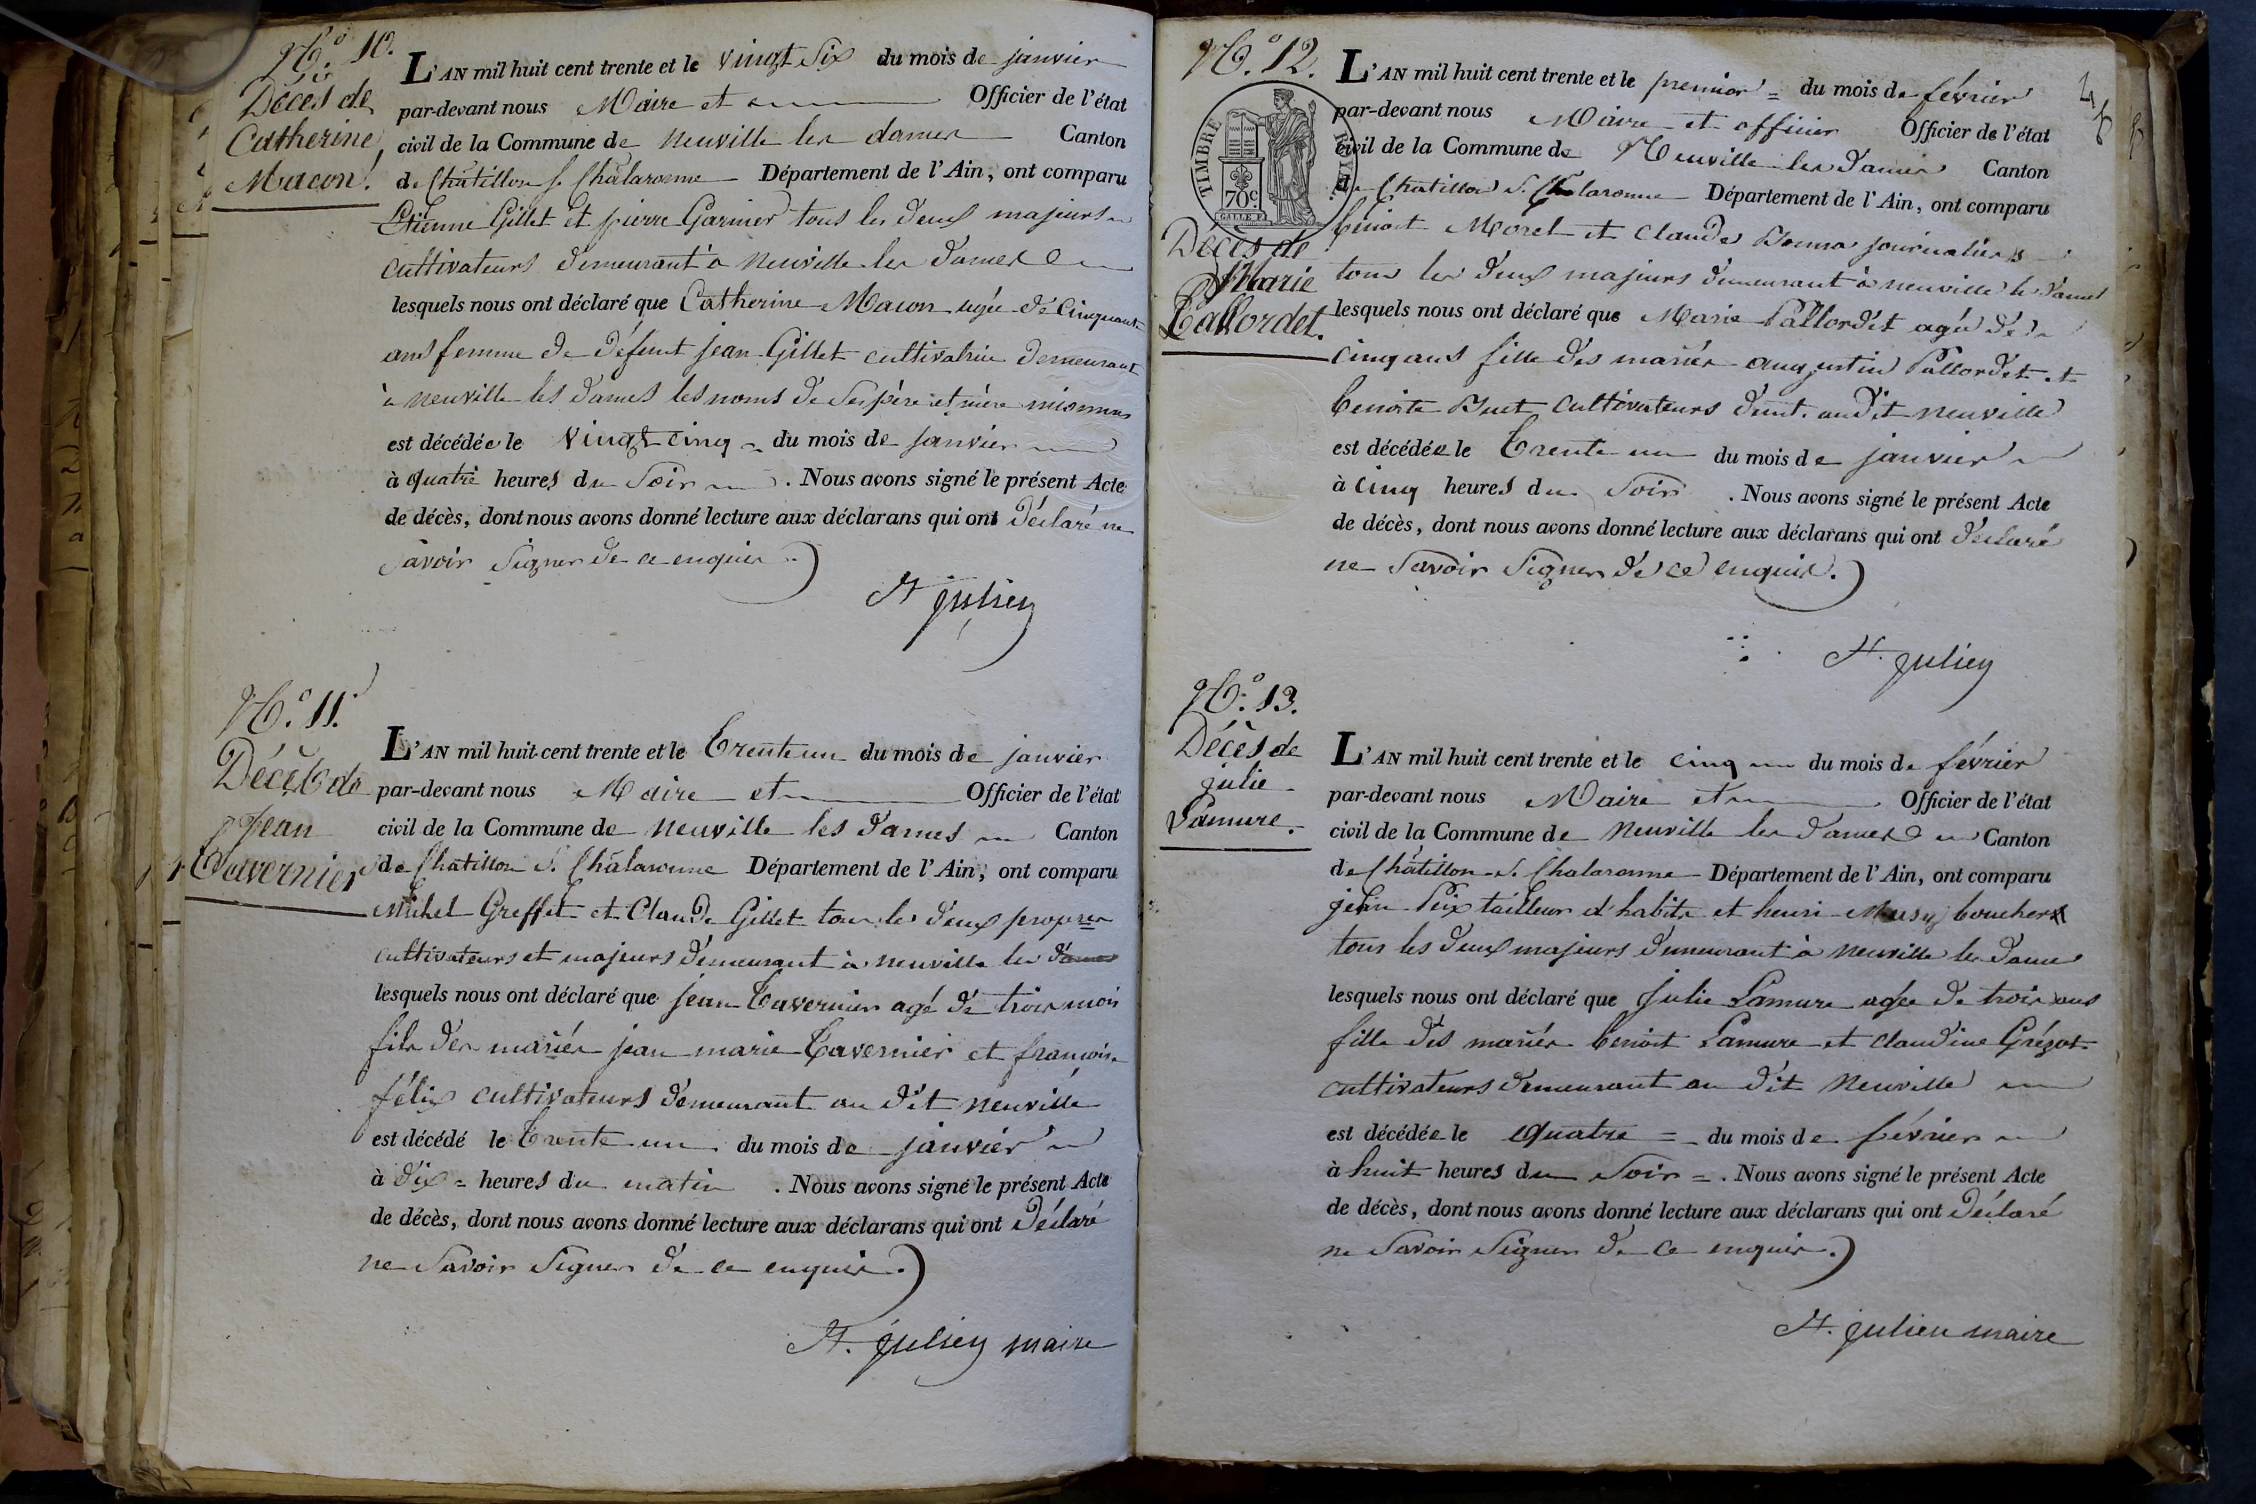 N.º 10.
Décès de
Catherine
Macon.
L'AN mil huit cent trente et le vingt Six du mois de janvier
par-devant nous Maire et Officier de l'état
civil de la Commune de Neuville les dames Canton
de Châtillon s. Châlaronne Département de l'Ain, ont comparu
Etienne Gillet et pierre Garnier tous les deux majeurs
cultivateurs demeurant à Neuville les Dames
lesquels nous ont déclaré que Catherine Macon agée de Cinquante
ans femme de défunt jean Gillet cultivatrice demeurant
à neuville les Dames les noms de Ses père et mère inconnus
est décédée le Vingt cinq du mois de janvier
à quatre heures du Soir . Nous avons signé le présent Acte
de décès, dont nous avons donné lecture aux déclarans qui ont déclaré ne
Savoir Signer de ce enquis
St julien
N.º 11.
Décès de
jean
Tavernier
L'AN mil huit cent trente et le Trente un du mois de janvier
par-devant nous Maire et Officier de l'état
civil de la Commune de Neuville les Dames Canton
de Châtillon S. Châlaronne Département de l'Ain, ont comparu
Michel Greffet et Claude Gillet tous les deux propres
cultivateurs et majeurs demeurant à neuville les dames
lesquels nous ont déclaré que jean Tavernier agé de trois mois
fils des mariés jean marie Tavernier et françoise
félix cultivateurs demeurant au dit neuville
est décédé le Trente un du mois de janvier
à dix = heures du matin . Nous avons signé le présent Acte
de décès, dont nous avons donné lecture aux déclarans qui ont Déclaré
ne Savoir Signer de ce enquis.
St. julien maire
N.º 12.
TIMBRE ROYAL
70c.
Décès de
Marie
Pallordet.
L'AN mil huit cent trente et le premier = du mois de février
par-devant nous Maire et officier Officier de l'état
civil de la Commune de Neuville les Dames Canton
de Châtillon S. Chalaronne Département de l'Ain, ont comparu
benoit Morel et Claude journaliers
tous les deux majeurs demeurant à neuville les Dames
lesquels nous ont déclaré que Marie Pallordet agée de
Cinq ans fille des mariés augustin Pallordet et
benoite Buet cultivateurs demt. audit Neuville
est décédée le Trente un du mois de janvier
à Cinq heures du Soir . Nous avons signé le présent Acte
de décès, dont nous avons donné lecture aux déclarans qui ont déclaré
ne Savoir Signer de ce enquis.
St. julien
N.º 13.
Décès de
julie
Lamure.
L'AN mil huit cent trente et le cinq du mois de février
par-devant nous Maire et Officier de l'état
civil de la Commune de Neuville les Dames Canton
de Châtillon S. Chalaronne Département de l'Ain, ont comparu
Pix tailleur d'habits et henri Musy boucher
tous les deux majeurs demeurant à Neuville les Dames
lesquels nous ont déclaré que julie Lamure agée de trois ans
fille des mariés benoit Lamure et claudine Grézot
cultivateurs demeurant au dit Neuville
est décédée le quatre = du mois de février
à huit heures du Soir = . Nous avons signé le présent Acte
de décès, dont nous avons donné lecture aux déclarans qui ont Déclaré
ne Savoir Signer de ce enquis.
St. julien maire